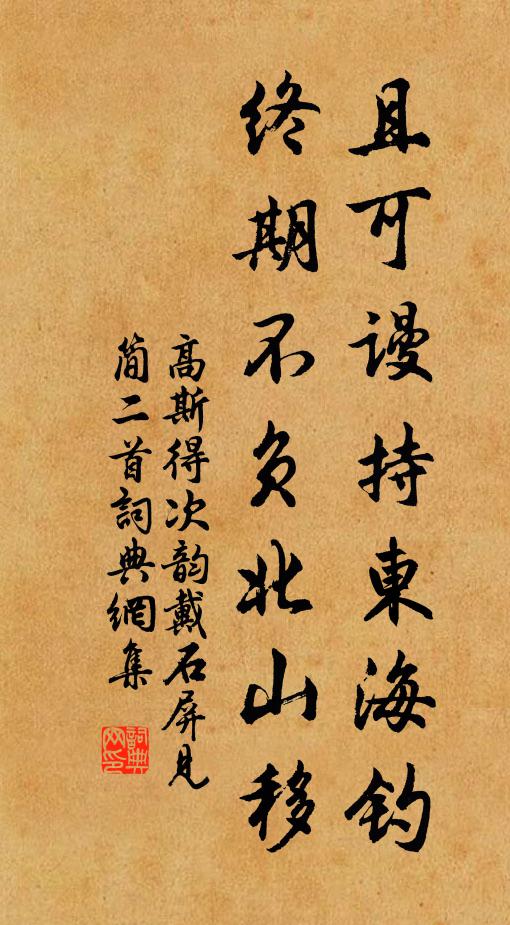 且可谩持東海钓
终期不负北山移
高斯得次韵戴石屏見
简二首詞典網集
詞典
网印